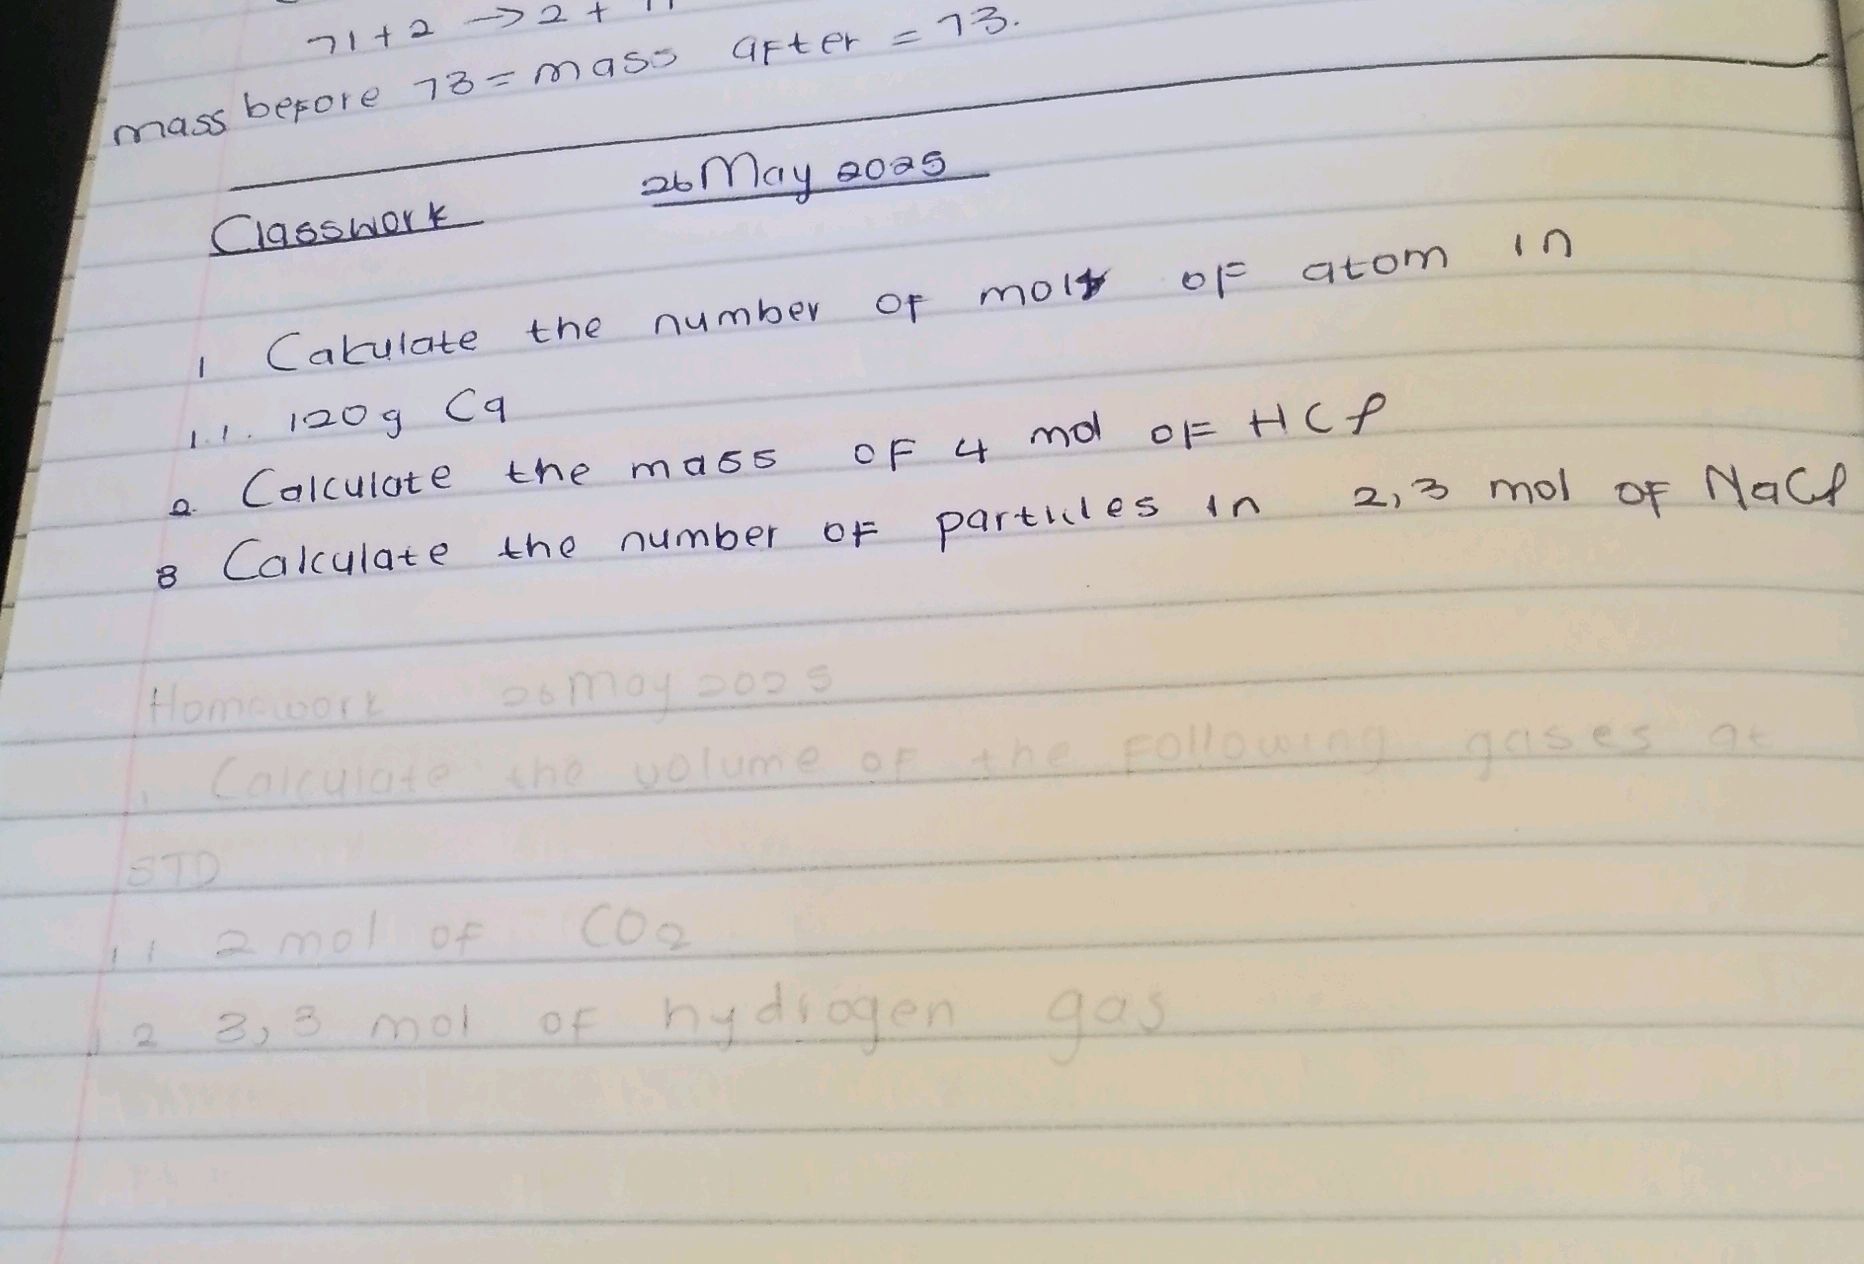 71 + 2 → 2 +
mass before 73 = mass after = 73.
Classwork 26 May 2025
1 Calculate the number of mols of atom in
1.1. 120g Ca
2. Calculate the mass of 4 mol of HCl
3 Calculate the number of particles in 2,3 mol of NaCl
Homework 26 May 2025
1. Calculate the volume of the following gases at
STD
1.1 2 mol of CO2
1.2 3,3 mol of hydrogen gas